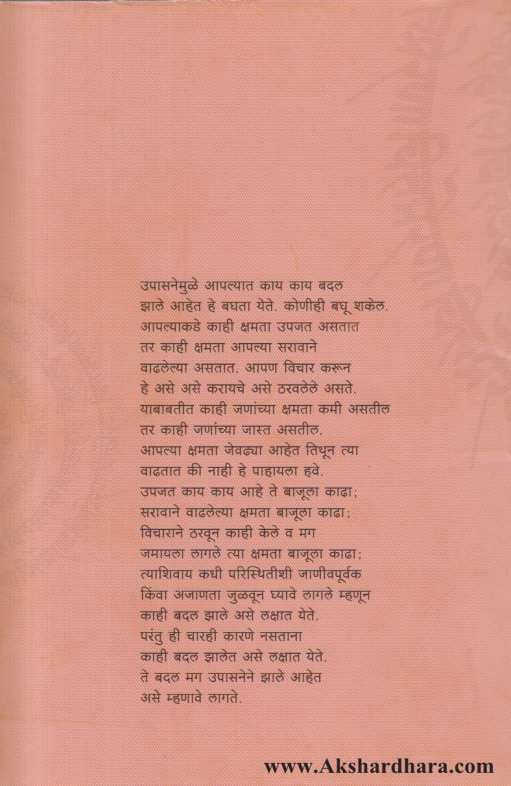 उपासनेमुळे आपल्यात काय काय बदल
झाले आहेत हे बघता येते. कोणीही बघू शकेल.
आपल्याकडे काही क्षमता उपजत असतात
तर काही क्षमता आपल्या सरावाने
वाढलेल्या असतात. आपण विचार करून
हे असे असे करायचे असे ठरवलेले असते.
याबाबतीत काही जणांच्या क्षमता कमी असतील
तर काही जणांच्या जास्त असतील.
आपल्या क्षमता जेवढ्या आहेत तिथून त्या
वाढतात की नाही हे पाहायला हवे.
उपजत काय काय आहे ते बाजूला काढा;
सरावाने वाढलेल्या क्षमता बाजूला काढा;
विचाराने ठरवून काही केले व मग
जमायला लागले त्या क्षमता बाजूला काढा;
त्याशिवाय कधी परिस्थितीशी जाणीवपूर्वक
किंवा अजाणता जुळवून घ्यावे लागले म्हणून
काही बदल झाले असे लक्षात येते.
परंतु ही चारही कारणे नसताना
काही बदल झालेत असे लक्षात येते.
ते बदल मग उपासनेने झाले आहेत
असे म्हणावे लागते.
www.Akshardhara.com